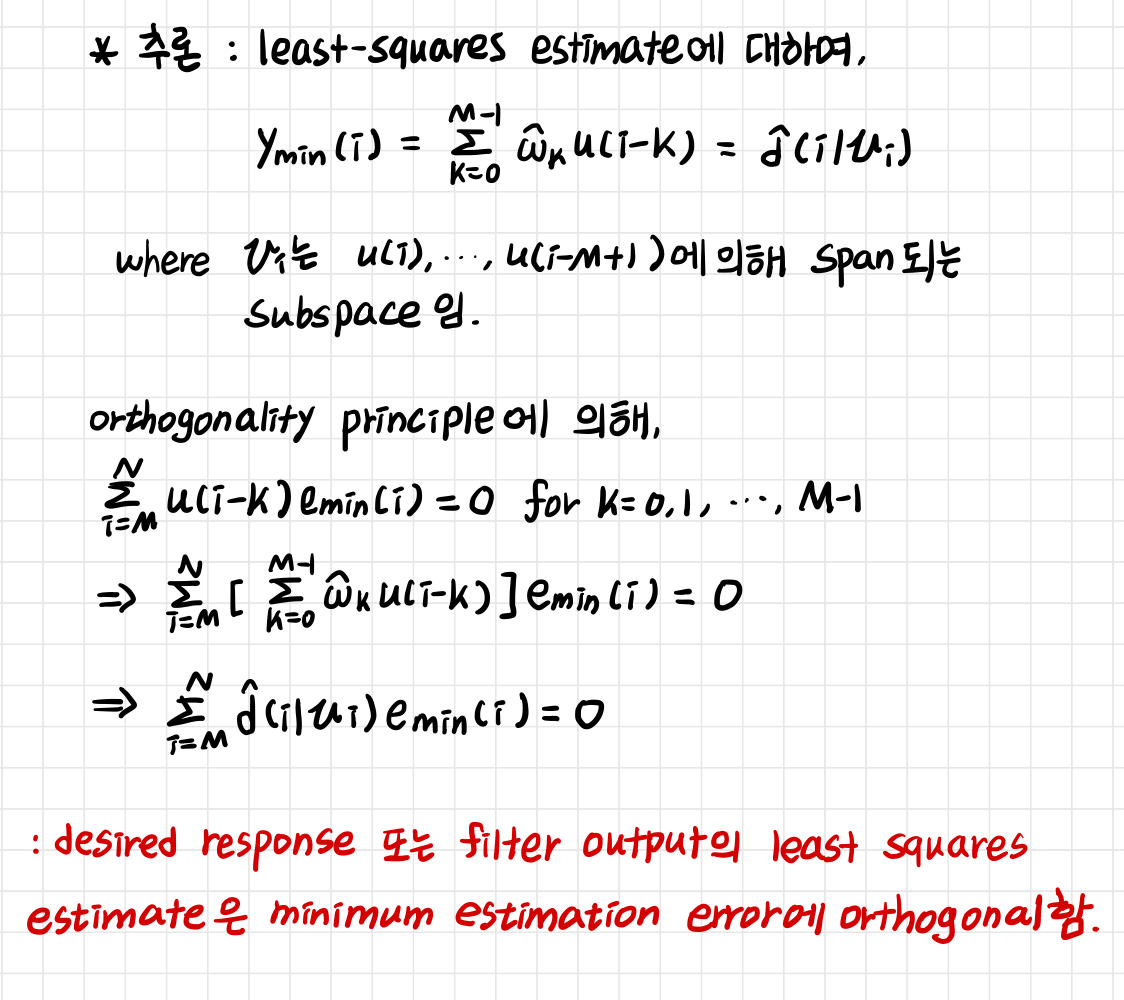 * 추론 : least-squares estimate에 대하여,
y_min(i) = Σ_{k=0}^{M-1} ŵ_k u(i-k) = d̂(i|𝒰_i)
where 𝒰_i는 u(i), ···, u(i-M+1)에 의해 span되는
subspace임.
orthogonality principle에 의해,
Σ_{i=M}^{N} u(i-k) e_min(i) = 0 for k=0,1, ···, M-1
⇒ Σ_{i=M}^{N} [ Σ_{k=0}^{M-1} ŵ_k u(i-k) ] e_min(i) = 0
⇒ Σ_{i=M}^{N} d̂(i|𝒰_i) e_min(i) = 0
: desired response 또는 filter output의 least squares
estimate은 minimum estimation error에 orthogonal함.